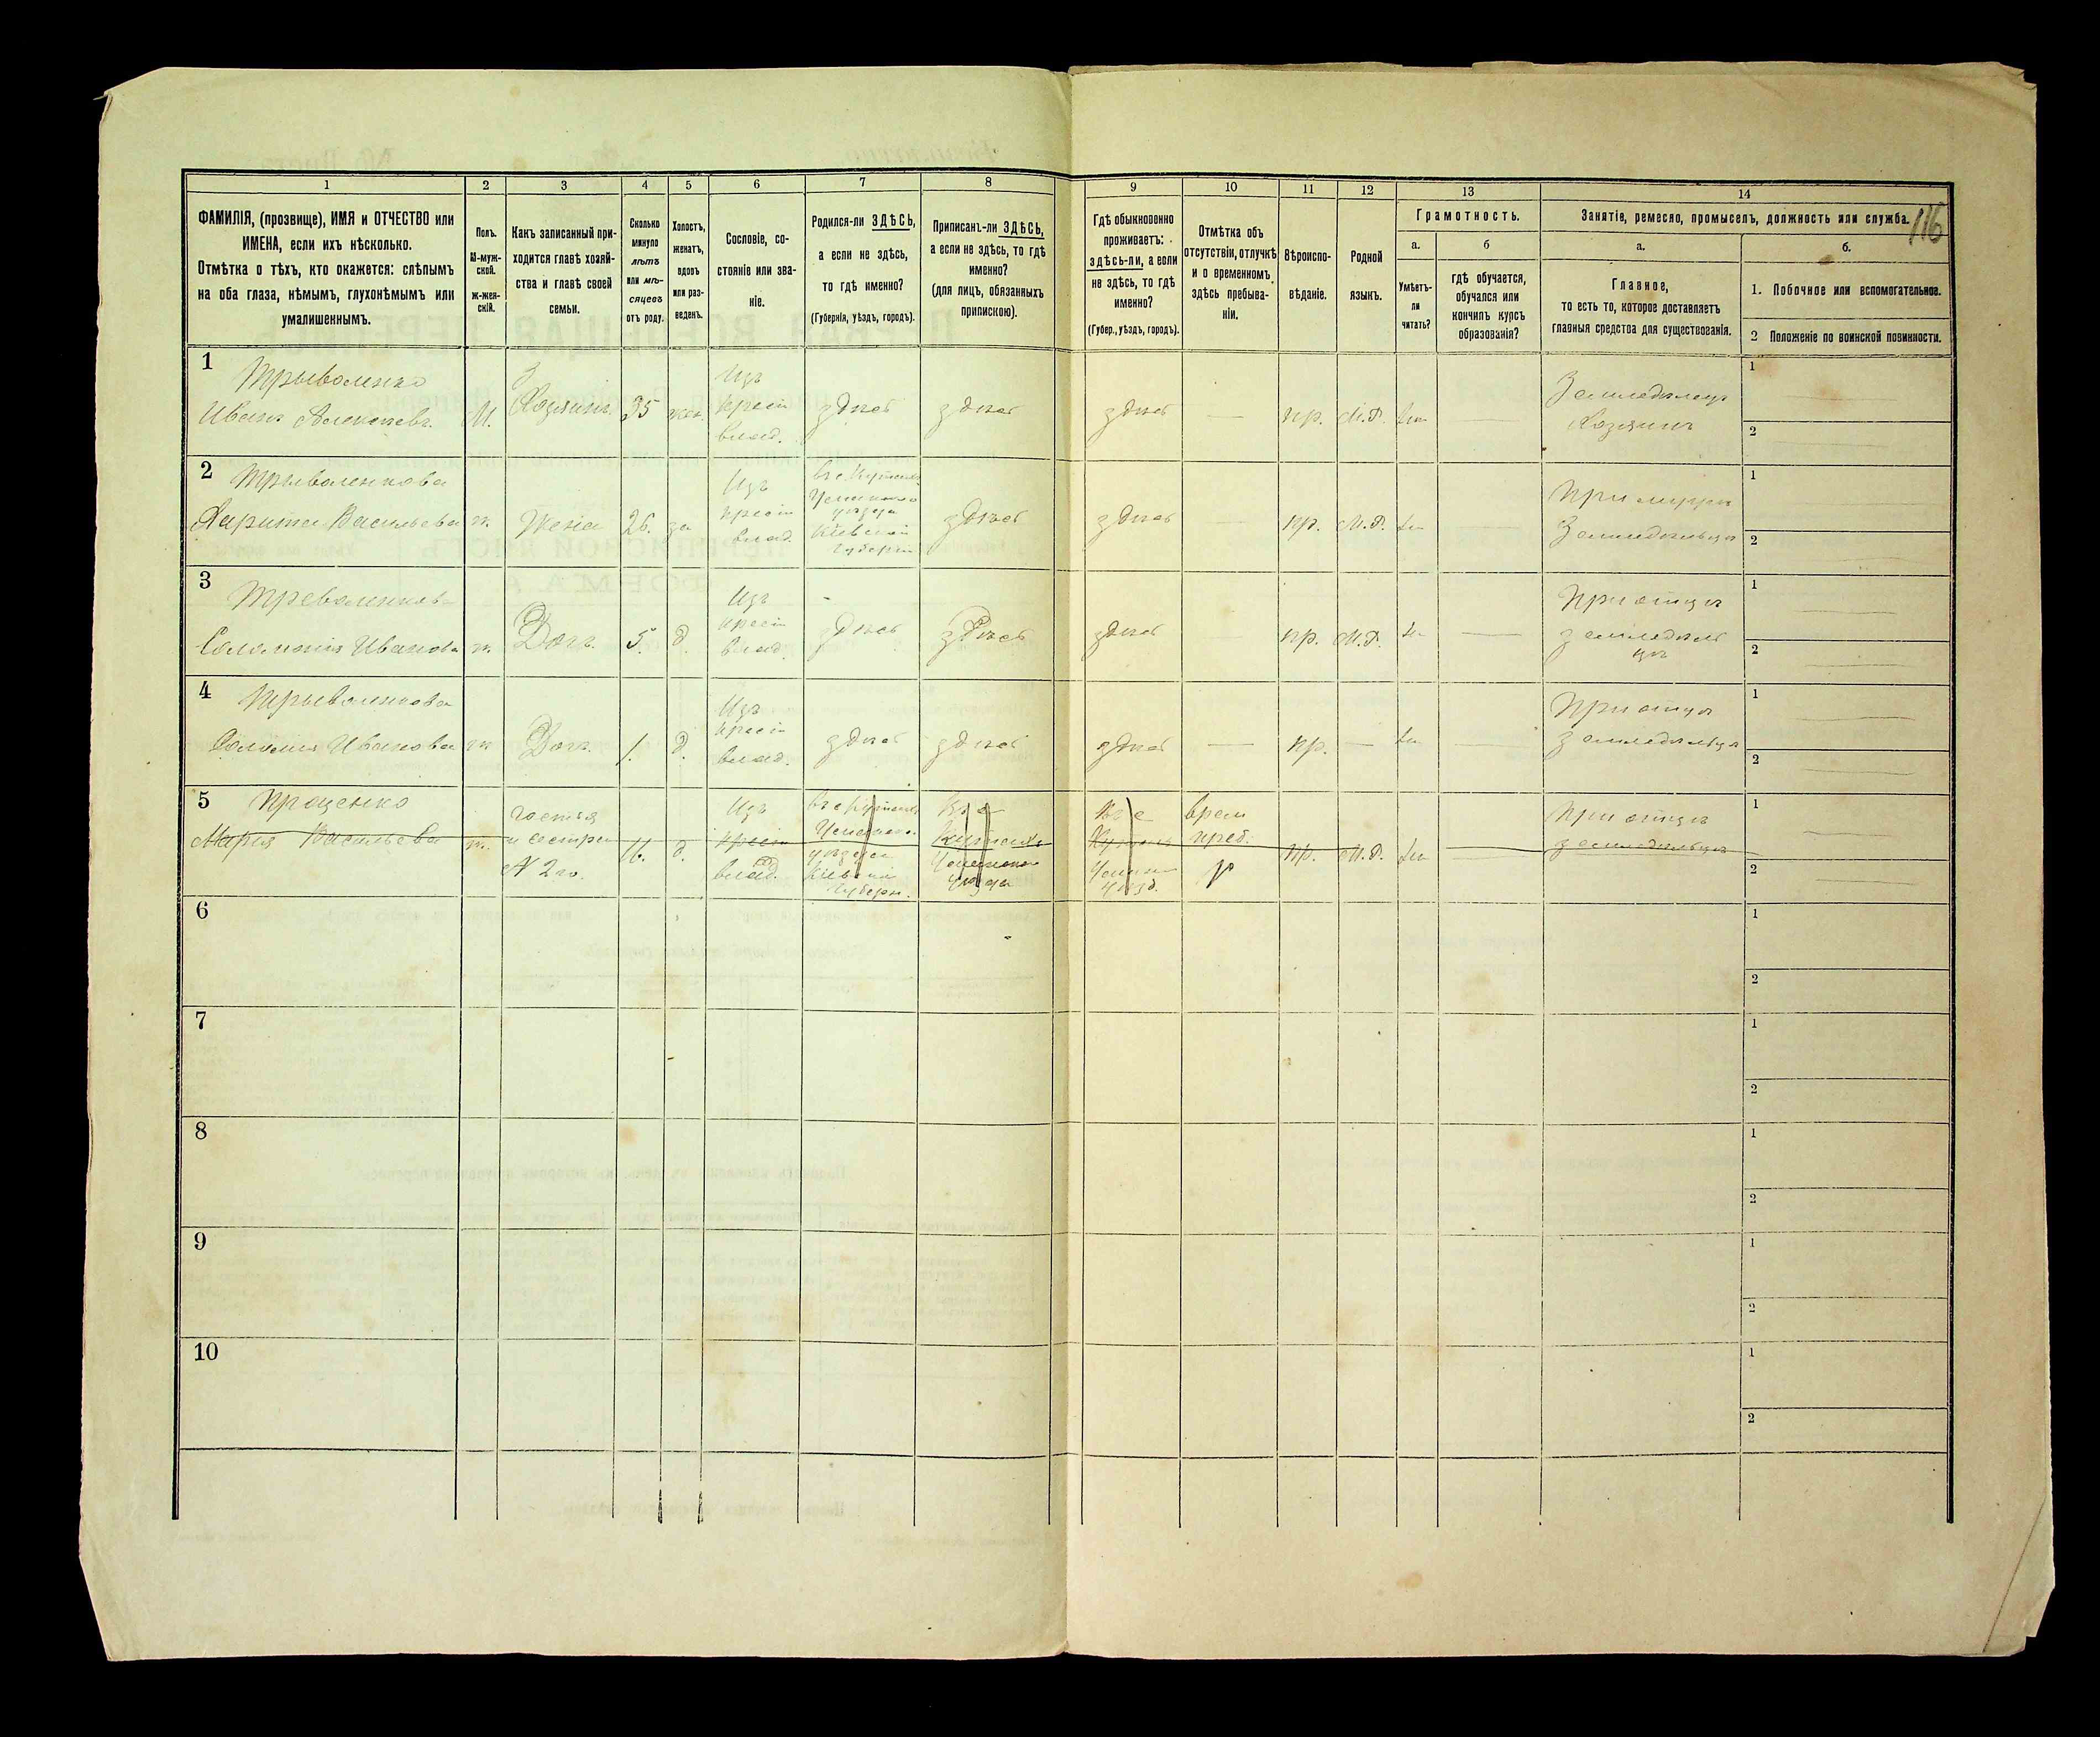 1
2
3
4
5
6
7
8
ФАМИЛІЯ, (прозвище), ИМЯ и ОТЧЕСТВО или
ИМЕНА, если ихъ нѣсколько.
Отмѣтка о тѣхъ, кто окажется: слѣпымъ
на оба глаза, нѣмымъ, глухонѣмымъ или
умалишеннымъ.
Полъ.
М-муж-
ской.
Ж-жен-
скій.
Какъ записанный при-
ходится главѣ хозяй-
ства и главѣ своей
семьи.
Сколько
минуло
лѣтъ
или мѣ-
сяцевъ
отъ роду.
Холостъ,
женатъ,
вдовъ
или раз-
веденъ.
Сословіе, со-
стояніе или зва-
ніе.
Родился-ли ЗДѢСЬ,
а если не здѣсь,
то гдѣ именно?
(Губернія, уѣздъ, городъ).
Приписанъ-ли ЗДѢСЬ,
а если не здѣсь, то гдѣ
именно?
(для лицъ, обязанныхъ
припискою).
9
10
11
12
13
14
Гдѣ обыкновенно
проживаетъ:
здѣсь-ли, а если
не здѣсь, то гдѣ
именно?
(Губер., уѣздъ, городъ).
Отмѣтка объ
отсутствіи, отлучкѣ
и о временномъ
здѣсь пребыва-
ніи.
Вѣроиспо-
вѣданіе.
Родной
языкъ.
Грамотность.
а.
б
Умѣетъ-
ли
читать?
гдѣ обучается,
обучался или
кончилъ курсъ
образованія?
Занятіе, ремесло, промыселъ, должность или служба.
116
а.
б.
Главное,
то есть то, которое доставляетъ
главныя средства для существованія.
1. Побочное или вспомогательное.
2 Положеніе по воинской повинности.
1
Трыволенко
Иванъ Алексѣевъ.
М.
Хозяинъ.
35
жен.
Изъ
крест
влад.
здѣсь
здѣсь
здѣсь
—
пр.
М.Р.
Земледѣлецъ
Хозяинъ
1
2
2
Трыволенкова
Харита Васильева
ж.
Жена
26.
за
Изъ
крест
влад.
уѣзда
Кіевской
губерн
здѣсь
здѣсь
—
пр.
М.Р.
При мужѣ
Земледѣльцѣ
1
2
3
Треволенков
Соломонія Иванова
ж.
Дочь.
5.
д.
Изъ
крест
влад.
здѣсь
здѣсь
здѣсь
пр.
М.Р.
При отцѣ
земледѣль
цѣ
1
2
4
Трыволенкова
Иванова
ж
Дочь.
1.
д.
Изъ
крест
влад.
здѣсь
здѣсь
здѣсь
—
пр.
—
При отцѣ
земледѣльцѣ
1
2
5
Проценко
Марія Васильева
ж.
гостья
и сестра
N 2го.
д.
Изъ
крест
влад.
уѣзда
Кіевской
губерн.
уѣзда
уѣзд.
врем
преб.
пр.
М.Р.
При отцѣ
земледѣльцѣ
1
2
6
1
2
7
1
2
8
1
2
9
1
2
10
1
2